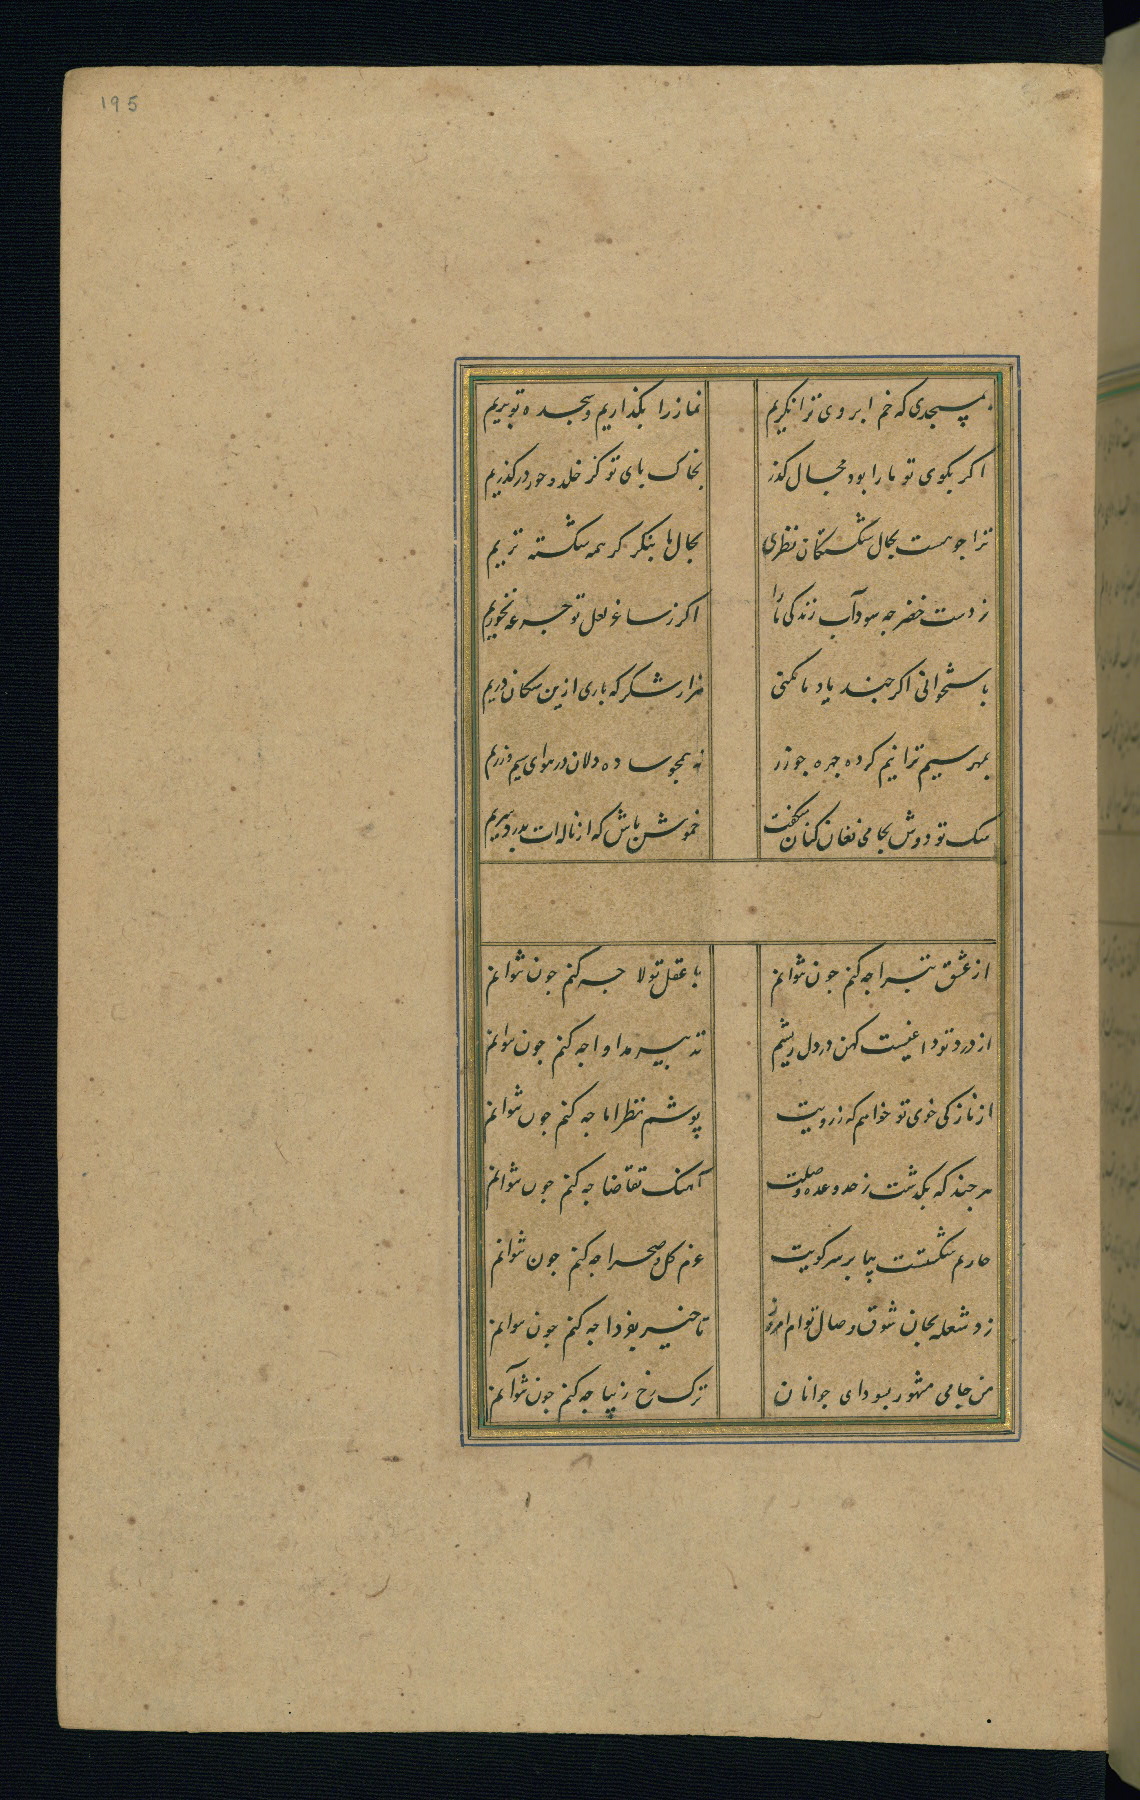 195
بمسجدی که خم ابروی ترا نکریم نماز را بکذاریم و سجده تو بریم
اکر بکوی تو ما را بود مجال کذر بخاک بای تو کز خلد و حور درکذریم
ترا جو هست بحال شکستکان نظری بحال ما بنکر کز همه شکسته تریم
ز دست خضر جه سود آب زندکی ما را اکر ز ساغر لعل تو جرعه نخوریم
باستخوانی اکر جند یاد ما نکنی هزار شکر که باری ازین سکان دریم
بمهر سیم ترا نیم کرده جهره جو زر نه همجو ساده دلان در هوای سیم و زریم
سک تو دوش بجامی فغان کنان میکفت خموش باش که از ناله ات بدرد سریم
از عشق تبرا جه کنم جون نتوانم با عقل تولا جه کنم جون نتوانم
از درد تو داغیست کهن در دل ریشم تدبیر مداوا جه کنم جون نتوانم
از نازکی خوی تو خواهم که ز رویت پوشم نظر اما جه کنم جون نتوانم
هر جند که بکذشت ز حد وعده وصلت آهنک تقاضا جه کنم جون نتوانم
خارم بشکستست بپا بر سر کویت عزم کل و صحرا جه کنم جون نتوانم
زد شعله بجان شوق وصال توام امروز تاخیر بفردا جه کنم جون نتوانم
من جامی مشهور بسودای جوانان ترک رخ زیبا جه کنم جون نتوانم